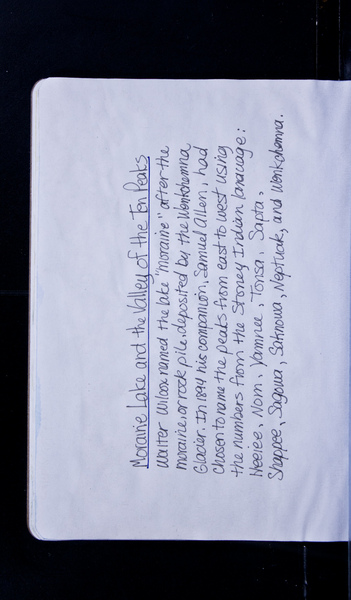 Moraine Lake and the Valley of the Ten Peaks
Walter Wilcox named the lake "moraine" after the
moraine, or rock pile, deposited by the Wenkchemna
Glacier. In 1894 his companion, Samuel Allen, had
chosen to name the peaks from east to west using
the numbers from the Stoney Indian language:
Heejee, Nom, Yamnee, Tonsa, Sapta,
Shappee, Sagowa, Saknowa, Neptuak, and Wenkchemna.